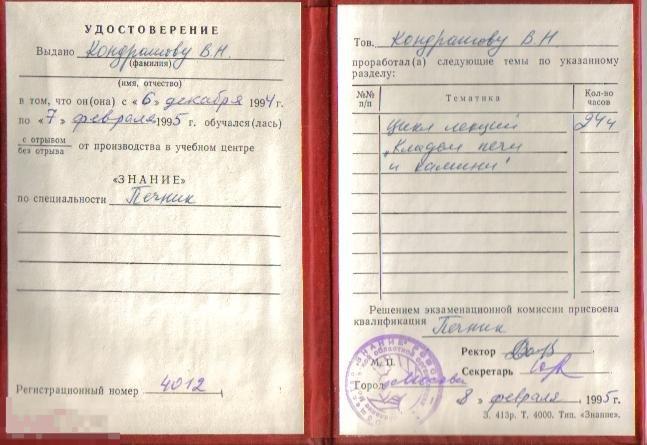 УДОСТОВЕРЕНИЕ
Выдано Кондрашову В.Н.
(фамилия)
(имя, отчество)
в том, что он(она) с «6» декабря 1994 г.
по «7» февраля 1995 г. обучался(лась)
с отрывом
без отрыва от производства в учебном центре
«ЗНАНИЕ»
по специальности Печник
Регистрационный номер 4012
Тов. Кондрашову В.Н
проработал(а) следующие темы по указанному
разделу:
№№ п/п Тематика Кол-во часов
Цикл лекций 24ч
„Кладем печи
и камины"
Решением экзаменационной комиссии присвоена
квалификация Печник
Ректор
М. П. Секретарь
Город Москва
8 » февраля 1995 г.
З. 413р. Т. 4000. Тип. «Знание».